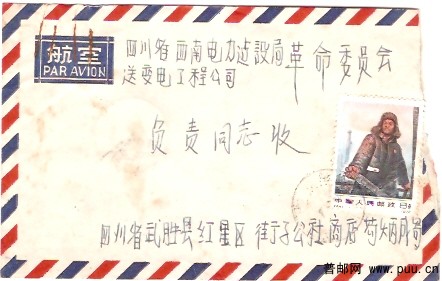 航空
PAR AVION
四川省西南电力建设局革命委员会
送变电工程公司
负责同志收
中国人民邮政
四川省武胜县红星区街子公社商店苟炳
普邮网 www.puu.cn